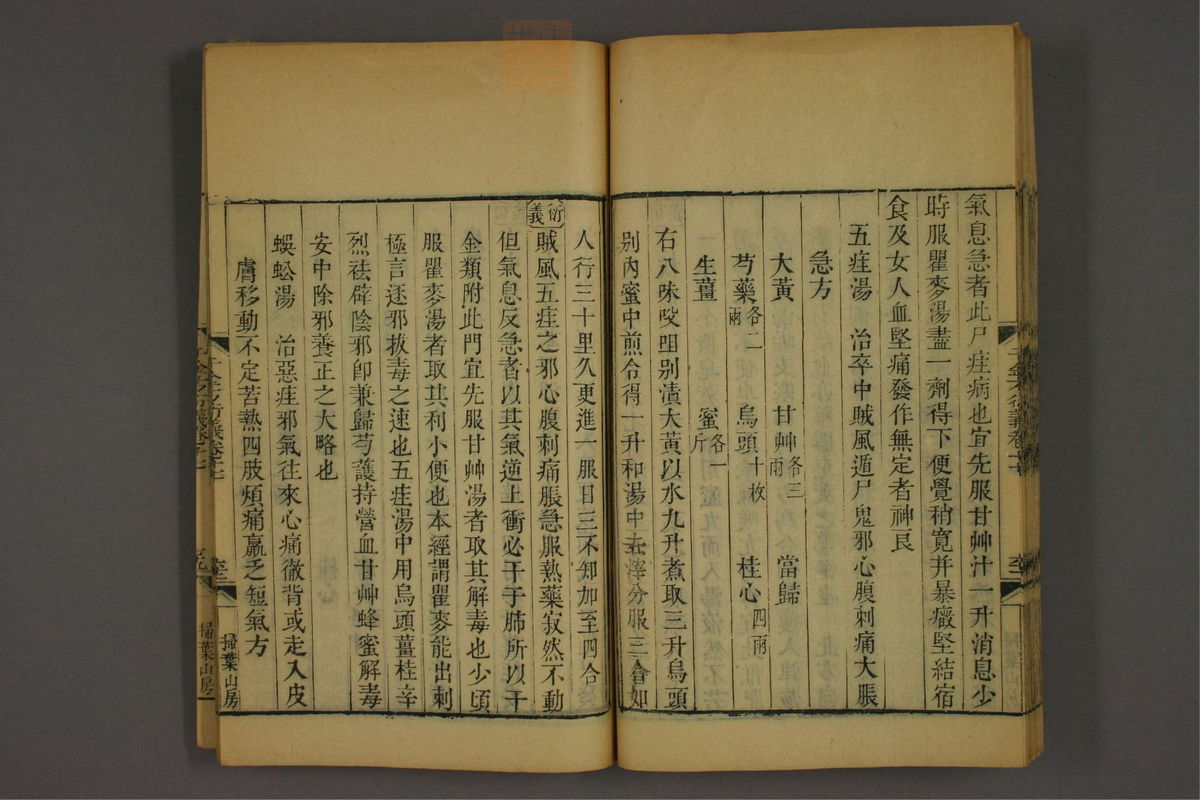 氣息急者此尸疰病也宜先服甘艸汁一升消息少
時服瞿麥湯盡一劑得下便覺稍寛并暴癥堅結宿
食及女人血堅痛發作無定者神良
五疰湯 治卒中賊風遁尸鬼邪心腹刺痛大脹
急方
大黃 甘艸各三兩 當歸
芍藥各二兩 烏頭十枚 桂心四兩
生薑 蜜各一斤
右八味㕮咀别漬大黃以水九升煮取三升烏頭
别内蜜中煎令得一升和湯中去滓分服三合如
人行三十里久更進一服日三不知加至四合
衍義 賊風五疰之邪心腹刺痛脹急服熱藥寂然不動
但氣息反急者以其氣逆上衝必干于肺所以于
金類附此門宜先服甘艸湯者取其解毒也少頃
服瞿麥湯者取其利小便也本經謂瞿麥能出刺
極言逐邪拔毒之速也五疰湯中用烏頭薑桂辛
烈祛辟陰邪卽兼歸芍護持營血甘艸蜂蜜解毒
安中除邪養正之大略也
蜈蚣湯 治惡疰邪氣往來心痛徹背或走入皮
膚移動不定苦熱四肢煩痛羸乏短氣方
掃葉山房
掃葉山房